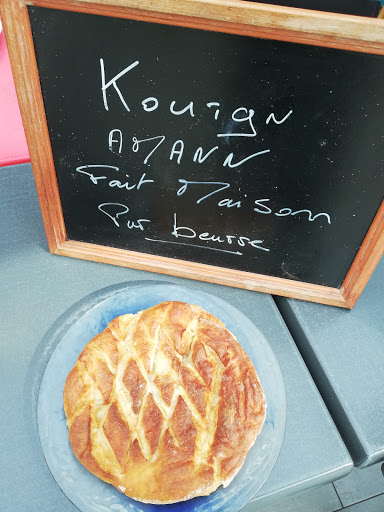 Kouign
AMANN
Fait Maison
Pur beurre